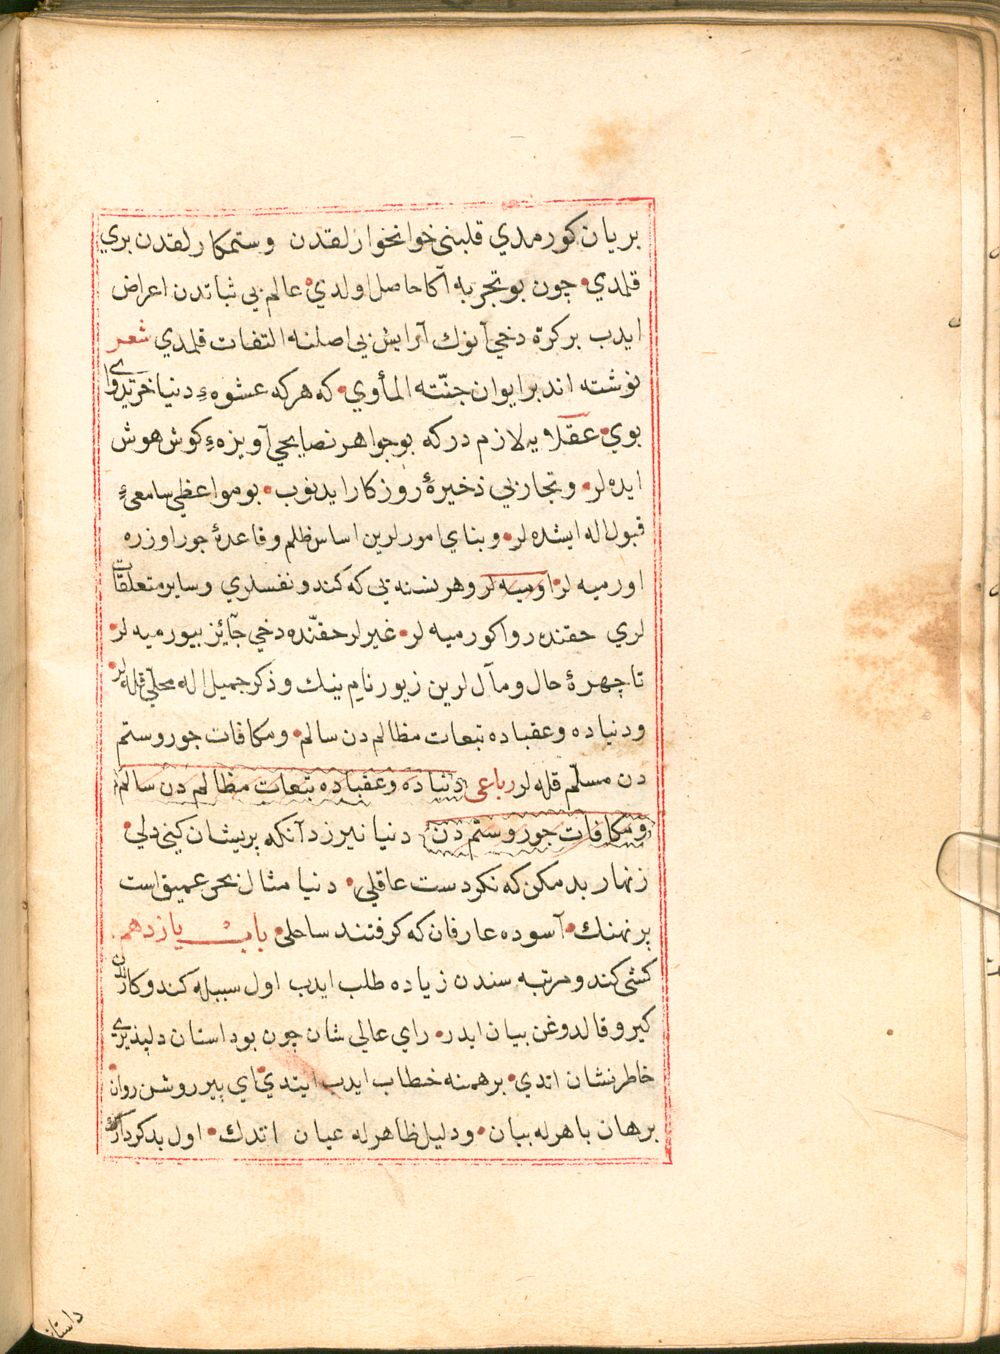 بريان كورمدي قلبني خوانخوارلقدن وستمكارلقدن بري
قلدي • چون بو تجربه آكا حاصل اولدي • عالم بي ثباتدن اعراض
ايدب بر كرّه دخي آنوك آرايش بي اصلنه التفات قلمدي شعر
نوشته اند بر ايوان جنّته المأوي • كه هر كه عشوهٔ دنيا خريد واي
بوي • عقلايه لازم دركه بو جواهر نصايحي آويزهء كوش هوش
ايده لر • و تجاربي ذخيرهٔ روزكار ايدنوب • بو مواعظي سامعهٔ
قبول اله ايشده لر • و بناي امورلرين اساس ظلم و قاعدهٔ جور اوزره
اورميه لر • اوميه لر و هر نسنه يي كه كندو نفسلري و ساير متعلقات
لري حقنده روا كورميه لر • غيرلر حقّنده دخي جآئز بيورميه لر •
تا چهرهٔ حال و مآل لرين زيور نام نيك و ذكر جميل اله محلّي قله لر •
و دنياده و عقباده تبعات مظالم دن سالم • و مكافات جور و ستم
دن مسلّم قله لر رباعي دنياده و عقباده تبعات مظالم دن سالم
و مكافات جور و ستم دن دنيا نيرزد آنكه پريشان كني دلي •
زنهار بد مكن كه نكردست عاقلي • دنيا مثال بحر عميق است
پر نهنك • آسوده عارفان كه كرفتند ساحلي • باب يازدهم .
كشي كندو مرتبه سندن زياده طلب ايدب اول سببله كندو كارندن
كيرو قالدوغن بيان ايدر • راي عالي شان چون بو داستان دلپذيري
خاطر نشان اتدي • برهمنه خطاب ايدب ايتدي اي پير روشن روان •
برهان باهر له بيان • و دليل ظاهر له عيان اتدك • اول بد كردارك
داستان